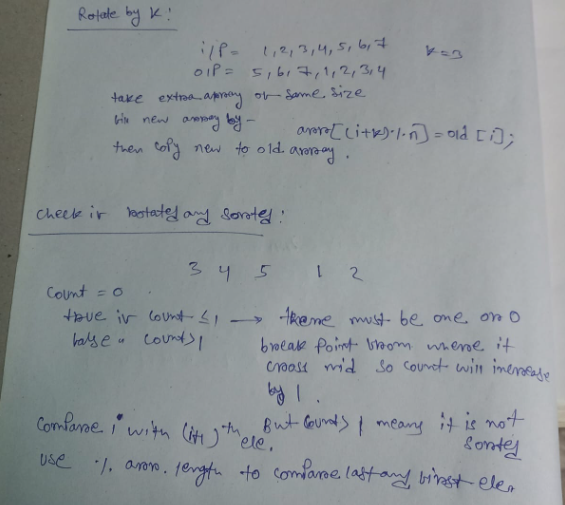 Rotate by K!
i/P = 1, 2, 3, 4, 5, 6, 7 K=3
O/P = 5, 6, 7, 1, 2, 3, 4
take extra array of same size
fill new array by - arr[(i+k)%n] = old [i];
then copy new to old array.
Check if rotated and sorted!
3 4 5 1 2
Count = 0
true if count ≤ 1 → there must be one or 0
false " count>1 break point from where it
cross mid so count will increase
by 1.
Compare i with (i+1)th ele. But count>1 means it is not
sorted
use % arr.length to compare last and first ele.